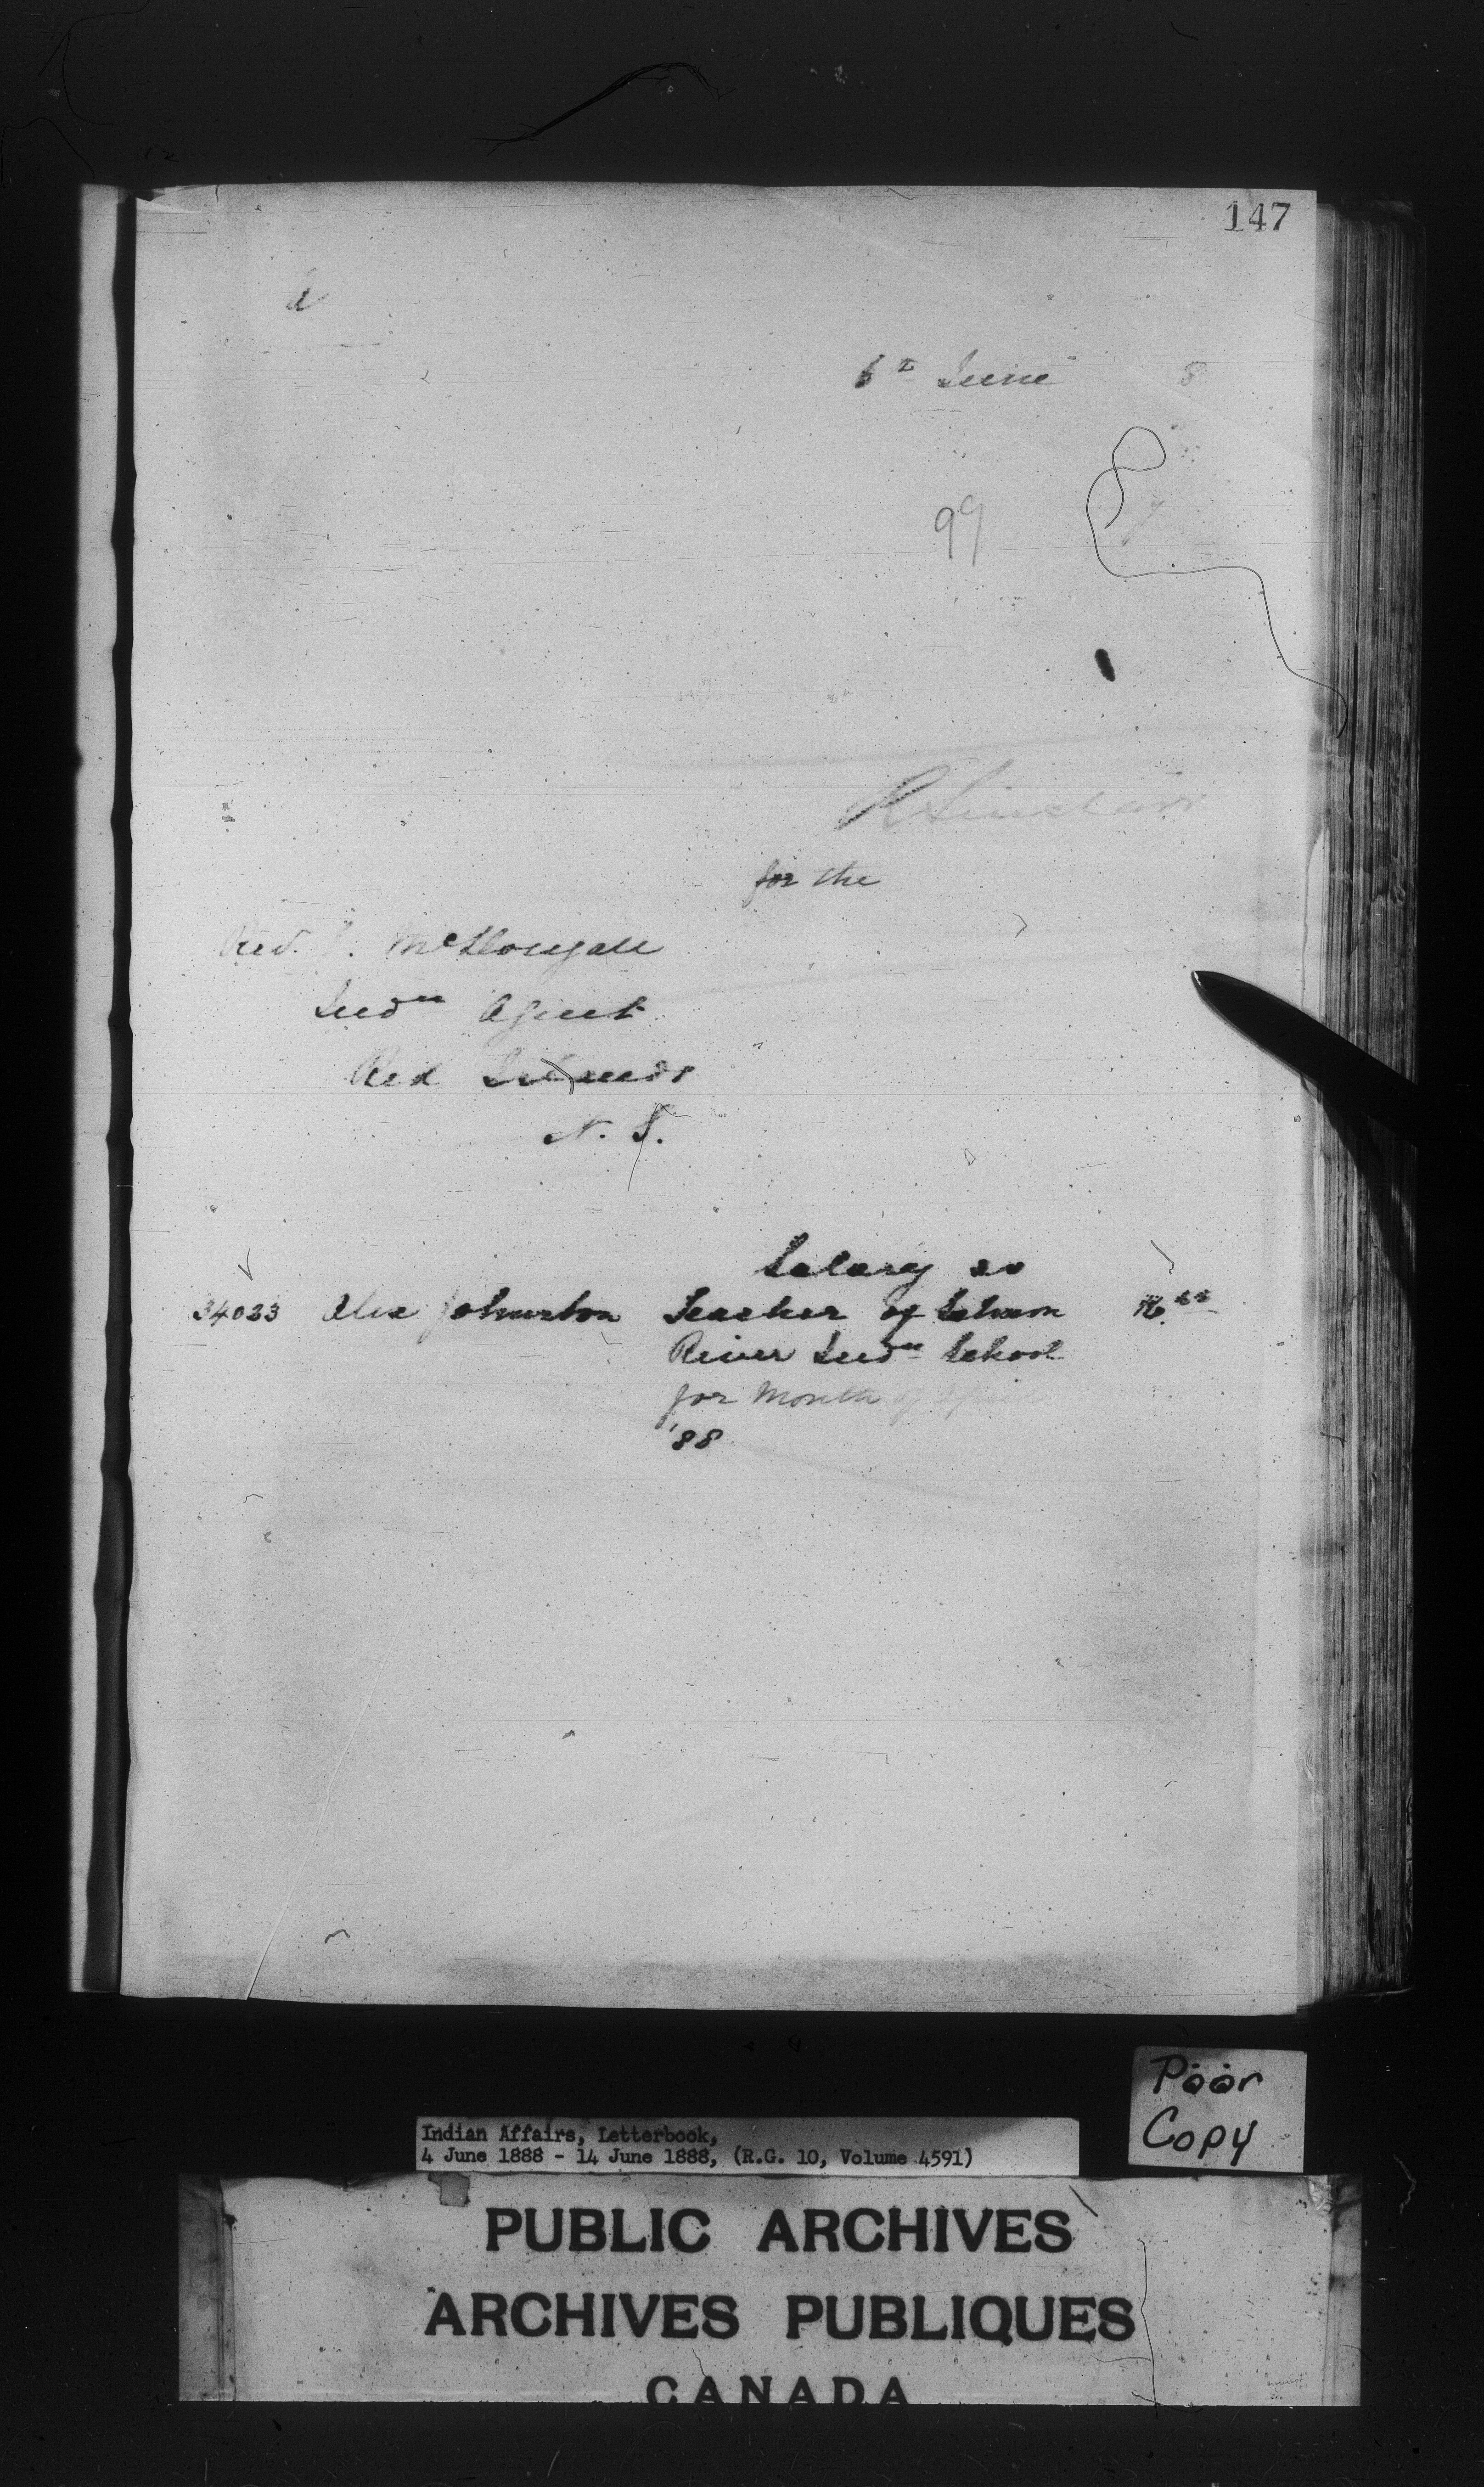 147
6th June 8
99
R Sinclair
for the
Rev. . McDougall
Indn Agent
Red Islands
N. S.
Salary as
34023 Alex Johnston Teacher of Salmon
River Indn School
for Month of April
'88
Indian Affairs, Letterbook,
4 June 1888 - 14 June 1888, (R.G. 10, Volume 4591)
Poor
Copy
PUBLIC ARCHIVES
ARCHIVES PUBLIQUES
CANADA